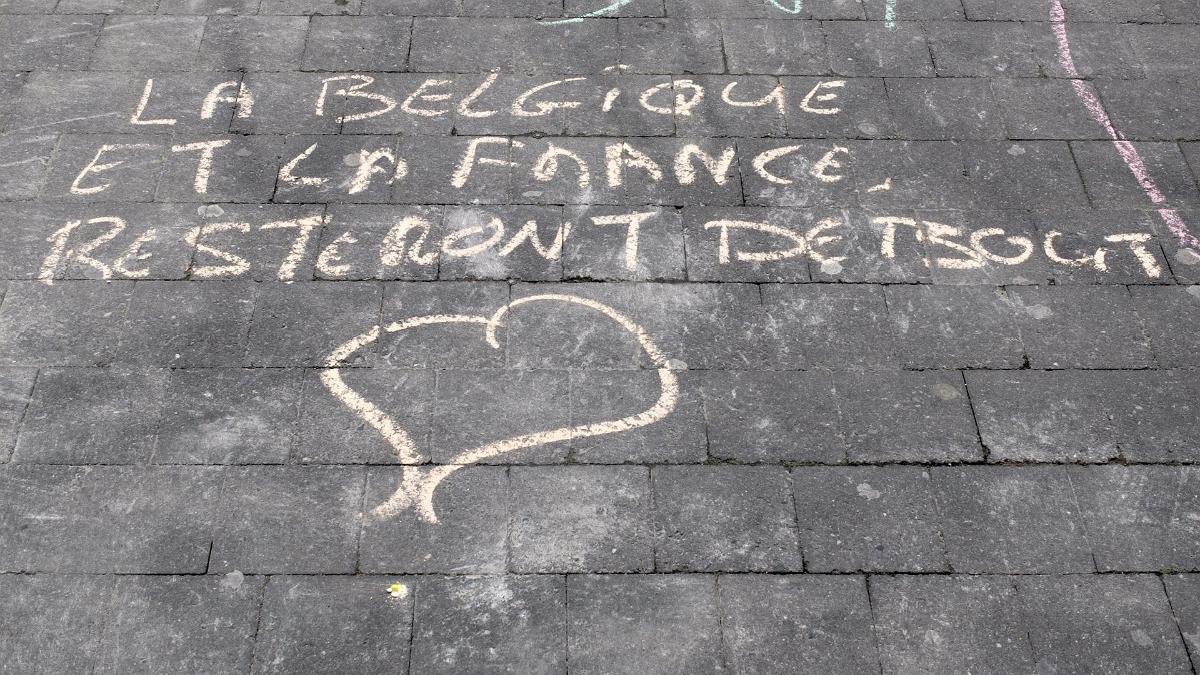 LA BELGIQUE
ET LA FRANCE,
RESTERONT DETBOUT